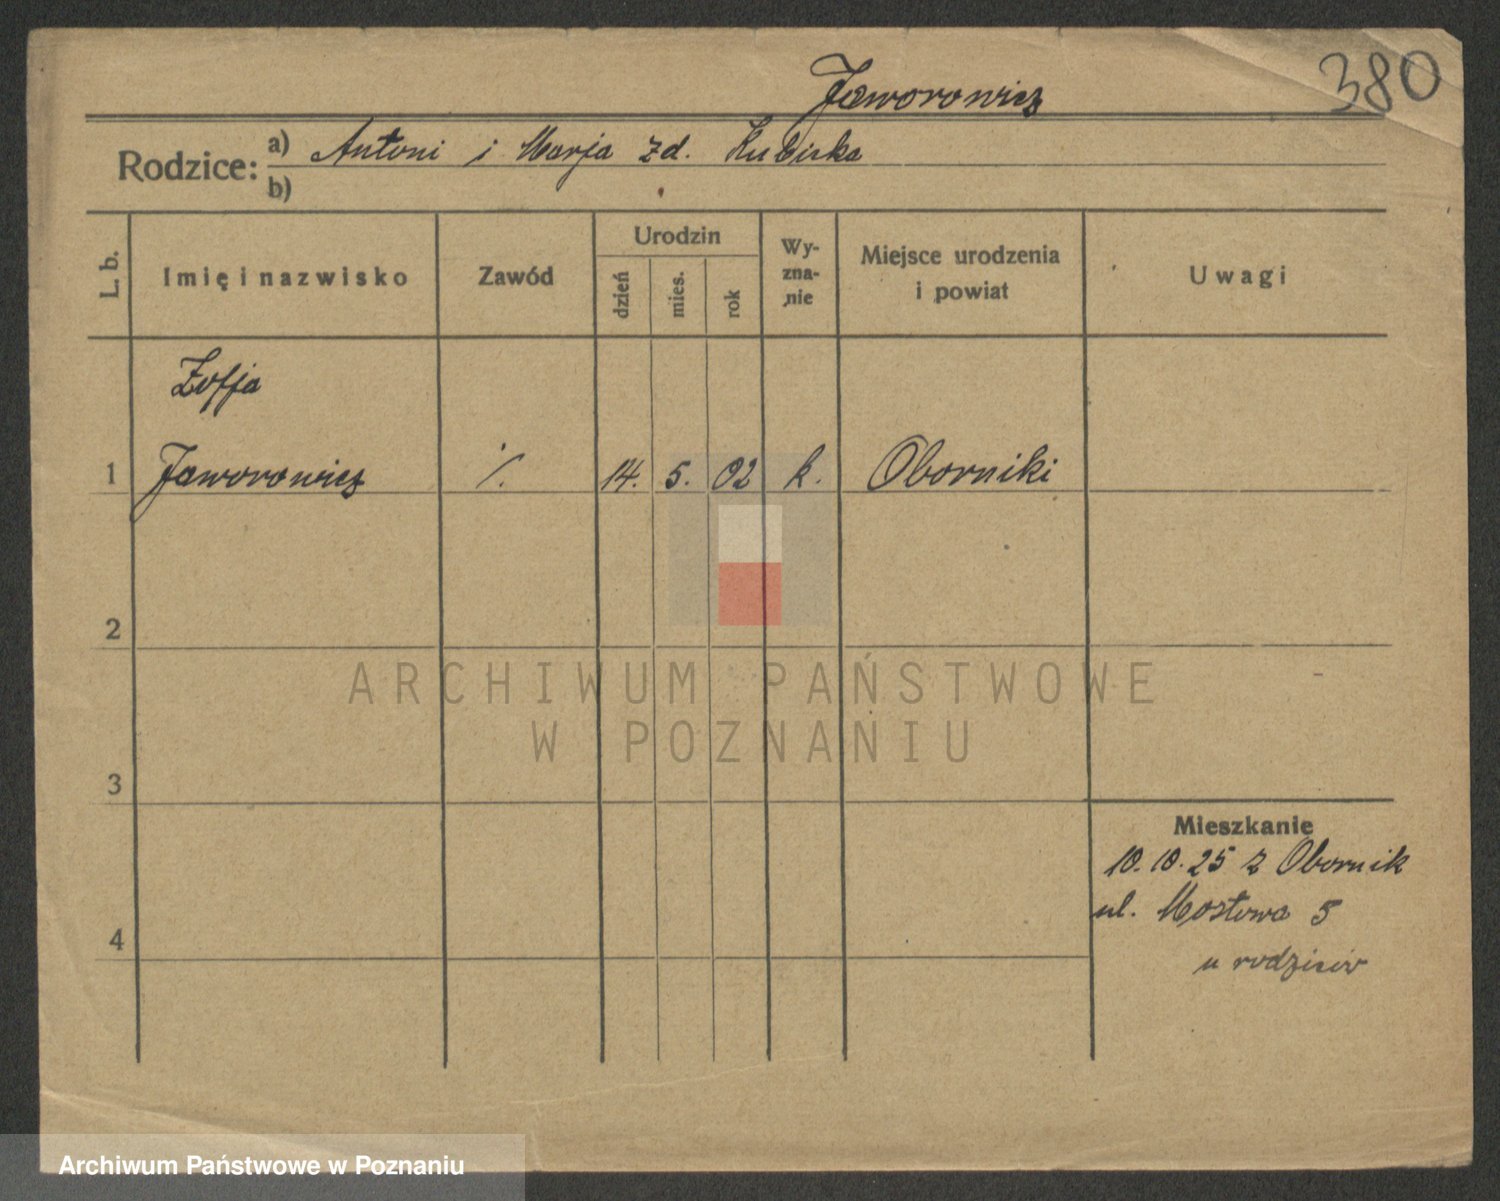 380
Jaworowicz
Rodzice: a) Antoni i Marja zd. Kubicka
b)
L. b.
Imię i nazwisko
Zawód
Urodzin
dzień
mies.
rok
Wy-
zna-
nie
Miejsce urodzenia
i powiat
Uwagi
Zofja
1 Jaworowicz ·/. 14. 5. 02 k. Oborniki
2
3
4
Mieszkanie
10.10.25 z Obornik
ul. Mostowa 5
u rodziców
ARCHIWUM PAŃSTWOWE
W POZNANIU
Archiwum Państwowe w Poznaniu